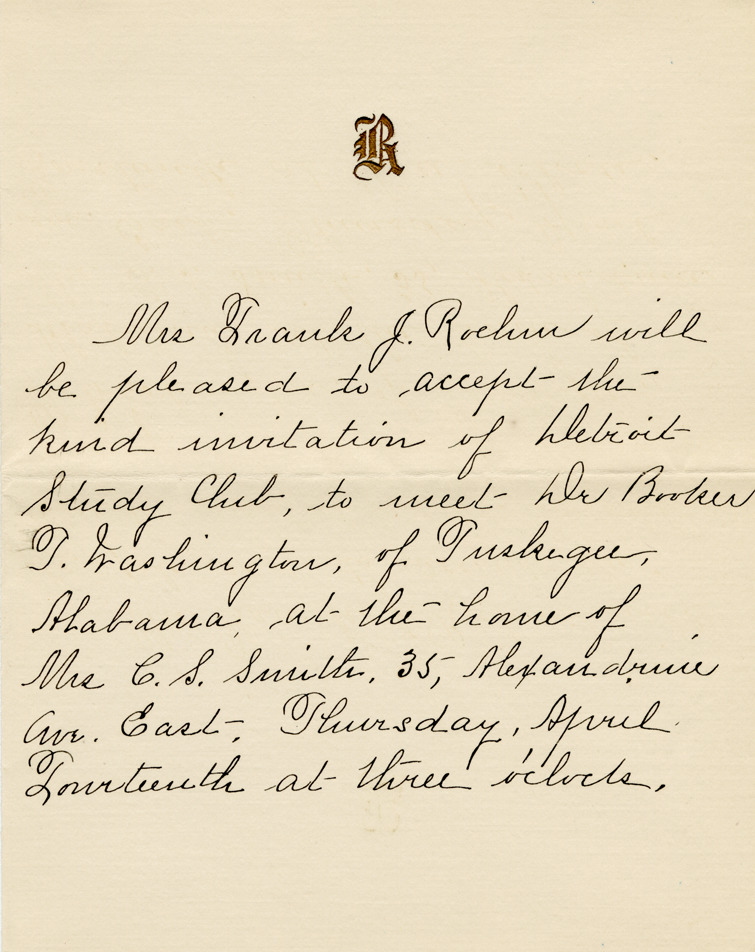 R
Mrs Frank J. Roehm will
be pleased to accept the
kind invitation of Detroit
Study Club, to meet Dr Booker
T. Washington, of Tuskegee,
Alabama, at the home of
Mrs C. S. Smith, 35, Alexandrine
Ave. East, Thursday, April
Fourteenth at three o'clock.